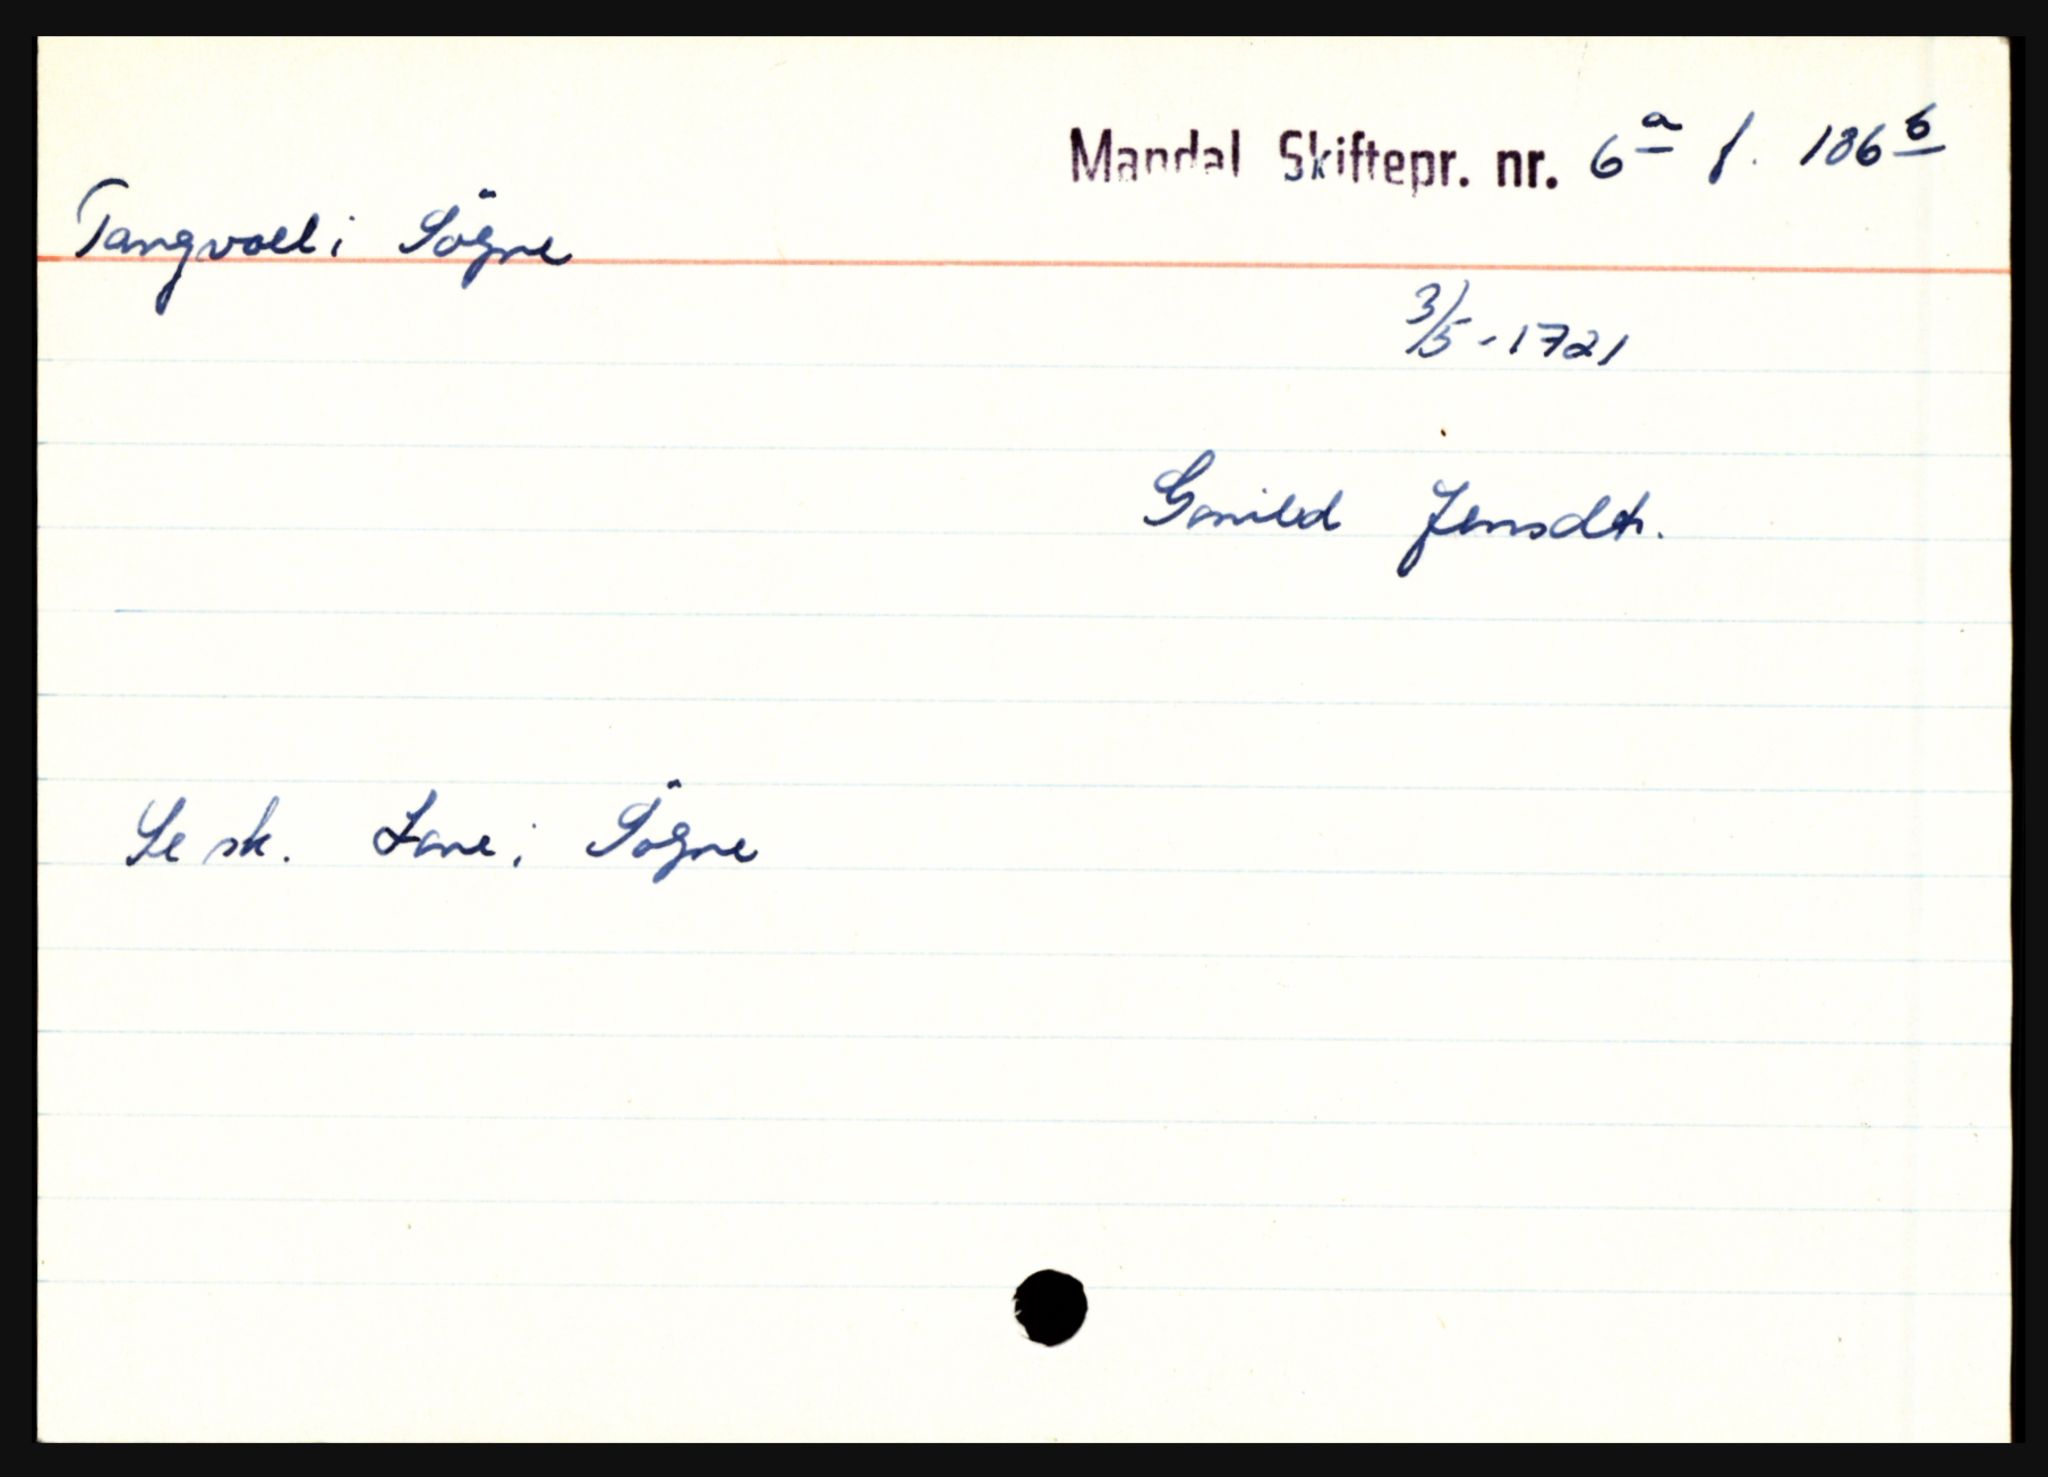 Mandal Skiftepr. nr. 6a f. 186b
Tangvall i Sögne
3/5-1721
Gonild Jensdtr.
Se sk. Lone i Sögne